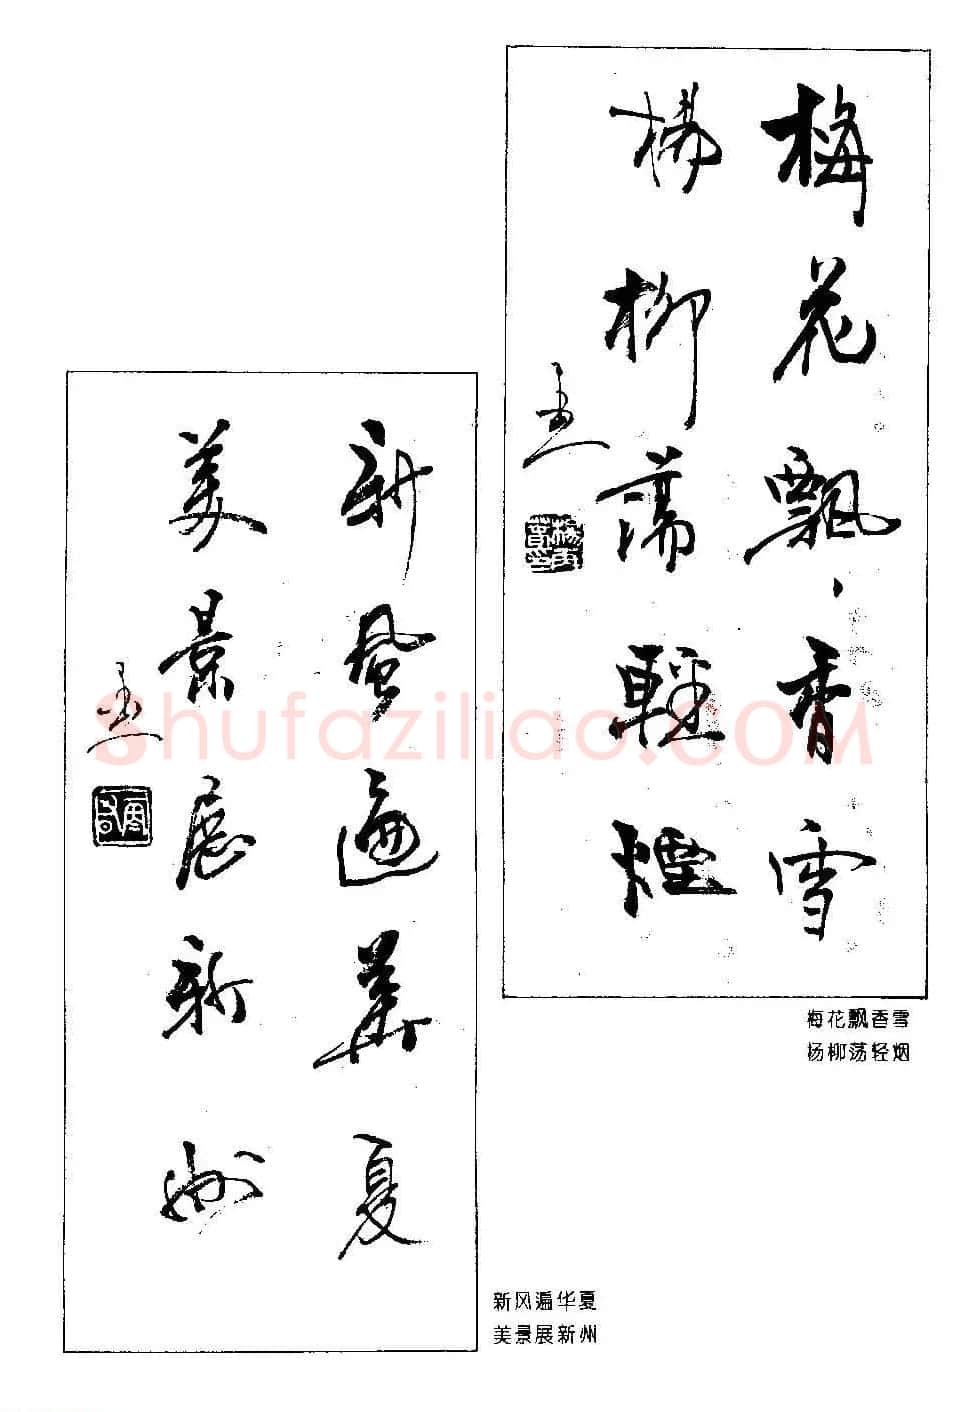 梅花飘香雪
楊柳蕩輕煙
梅花飘香雪
杨柳荡轻烟
新風遍華夏
美景展新州
新风遍华夏
美景展新州
Shufaziliao.COM